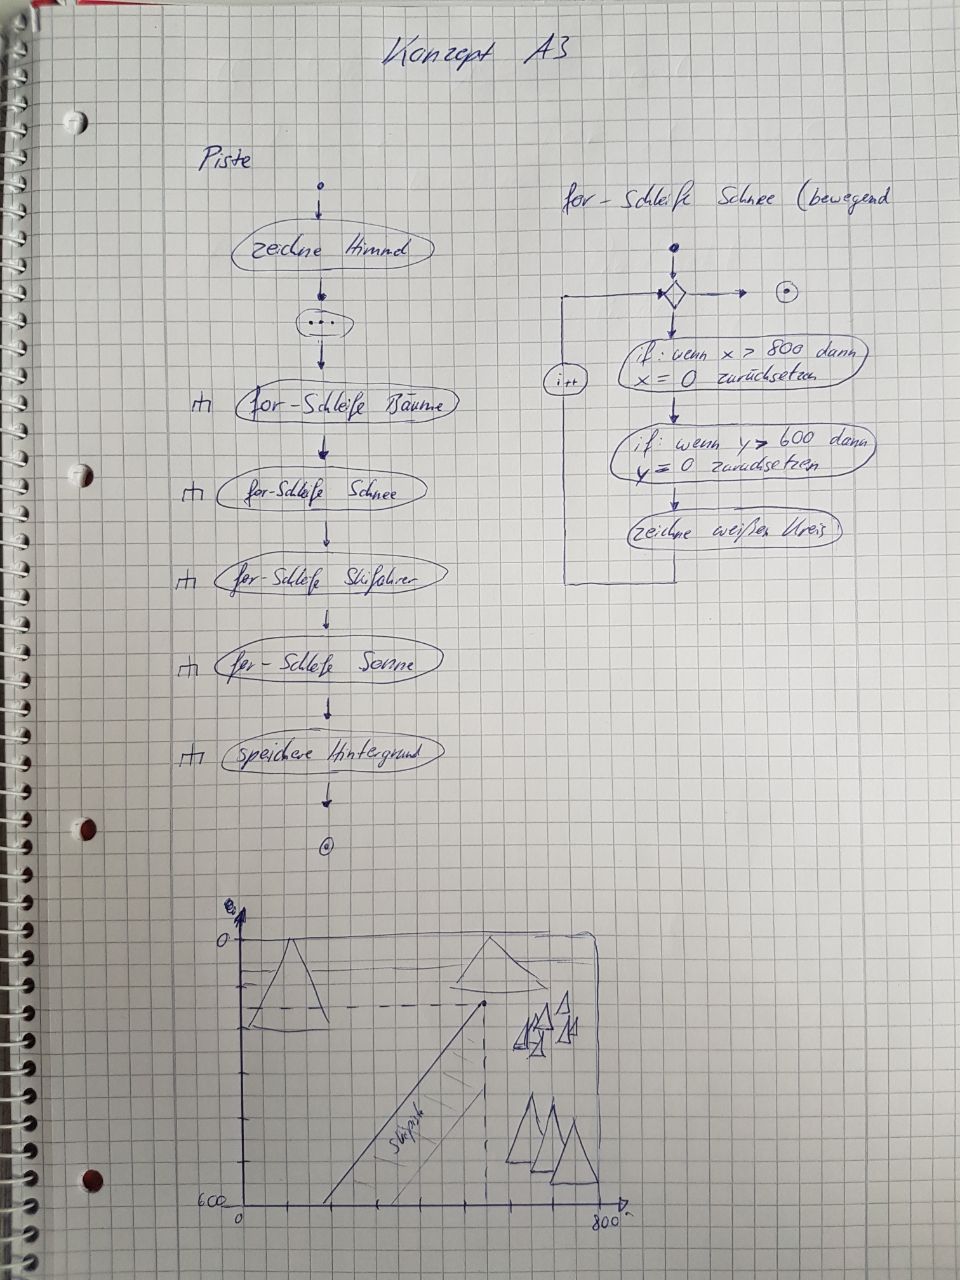 Konzept A3
Piste
zeichne Himmel
...
for-Schleife Bäume
for-Schleife Schnee
for-Schleife Skifahrer
for-Schleife Sonne
speichere Hintergrund
for-Schleife Schnee (bewegend
if: wenn x > 800 dann
x = 0 zurücksetzen
i++
if: wenn y > 600 dann
y = 0 zurücksetzen
zeichne weißen Kreis
0
Skipiste
600
0
800